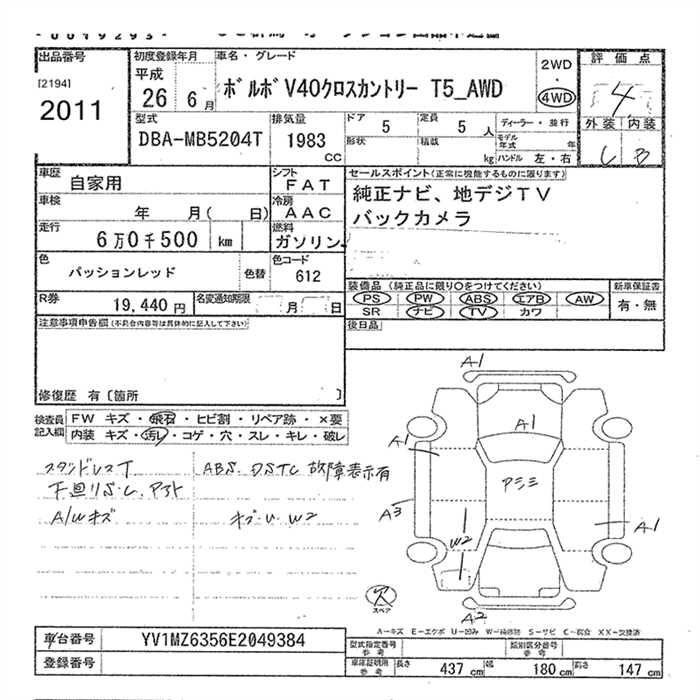 出品番号
[2194]
2011
初度登録年月
平成
26 年 6 月
車名・グレード
ボルボ V40クロスカントリー T5_AWD
2WD
・
4WD
評価点
4
外装 内装
C B
型式
DBA-MB5204T
排気量
1983
CC
ドア
5
定員
5 人
形状
積載
kg
ディーラー・並行
モデル年式 年
ハンドル 左・右
車歴
自家用
シフト
FAT
車検
年 月( 日)
冷房
AAC
走行
6 万 0 千 500 km
燃料
ガソリン
色
パッションレッド
色替
色コード
612
R券
19,440 円
名変通知期限
月 日
セールスポイント(正常に機能するものに限ります)
純正ナビ、地デジTV
バックカメラ
装備品(純正品に限り○をつけてください)
PS PW ABS エアB AW
SR ナビ TV カワ
新車保証書
有・無
後日品
注意事項申告欄(不具合内容等は具体的に記入して下さい)
修復歴 有〔箇所 〕
検査員記入欄
FW キズ・飛石・ヒビ割・リペア跡・×要
内装 キズ・汚レ・コゲ・穴・スレ・キレ・破レ
スタッドレスT
下廻りS.C.
A/Wキズ
ABS DSTC 故障表示有
キズ・U W2
A1
A1
A1
A3
A1
W2
A2
スペア
A-キズ E-エクボ U-凹み W-補修跡 S-サビ C-腐食 XX-交換済
車台番号
YV1MZ6356E2049384
登録番号
型式指定番号
参考
類別区分番号
参考
車庫証明用
参考
長さ 437 cm
幅 180 cm
高さ 147 cm